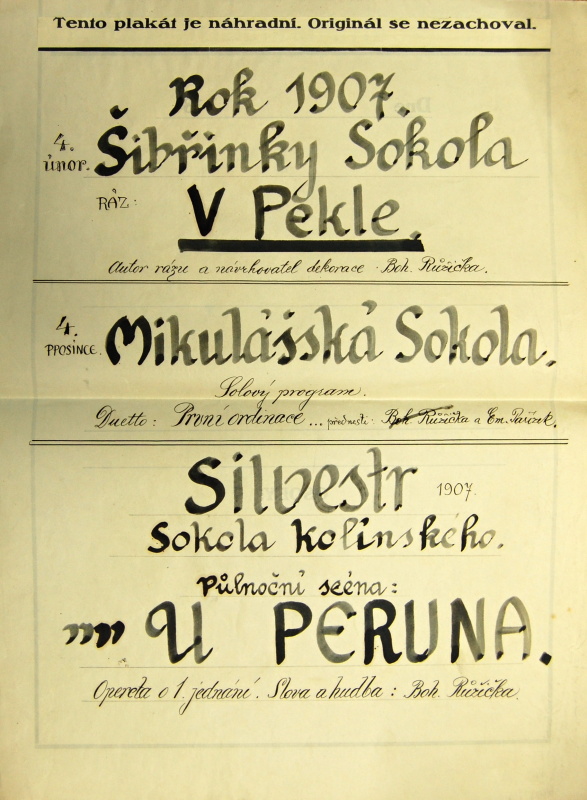 Tento plakát je náhradní. Originál se nezachoval.
Rok 1907.
4. únor. Šibřinky Sokola
RÁZ: V Pekle.
Autor rázu a návrhovatel dekorace Boh. Růžička.
4. PROSINCE. Mikulášská Sokola.
Solový program.
Duetto: První ordinace ... přednesli: Boh. Růžička a Em. Pařízek.
Silvestr 1907.
Sokola Kolínského.
Půlnoční scéna:
„„ U PERUNA.
Opereta o 1. jednání. Slova a hudba: Boh. Růžička.